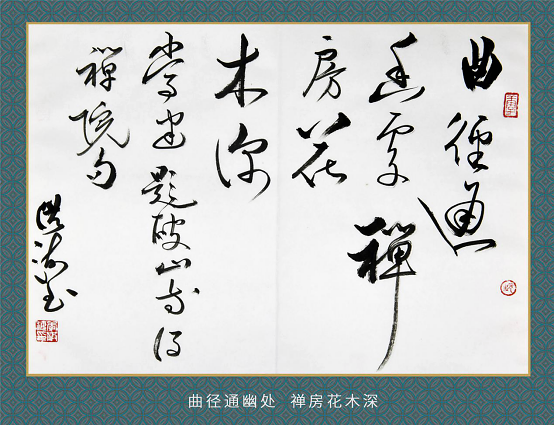 曲徑通
幽處禪
房花
木深
常建題破山寺後
禪院句
曲径通幽处 禅房花木深